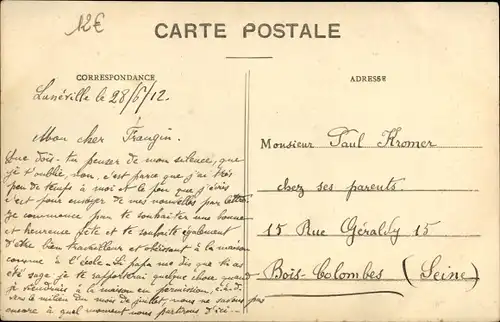 12€
CARTE POSTALE
CORRESPONDANCE
ADRESSE
Lunéville le 28/6/12.
Mon cher Frangin.
Que dois-tu penser de mon silence, que
je t'oublie, non, c'est parce que j'ai très
peu de temps à moi et le peu que j'écris
c'est pour envoyer de mes nouvelles par lettre.
Je commence par te souhaiter une bonne
et heureuse fête et te souhaite également
d'être bien travailleur et obéissant à la maison
comme à l'école. Si papa me dis que tu as
été sage je te rapporterai quelque chose quand
je viendrais à la maison en permission, c.à.d.
vers le milieu du mois de juillet, nous ne savons pas
encore à quel moment nous partirons d'ici.
Monsieur Paul Kromer
chez ses parents
15 Rue Géraldy 15
Bois-Colombes (Seine)